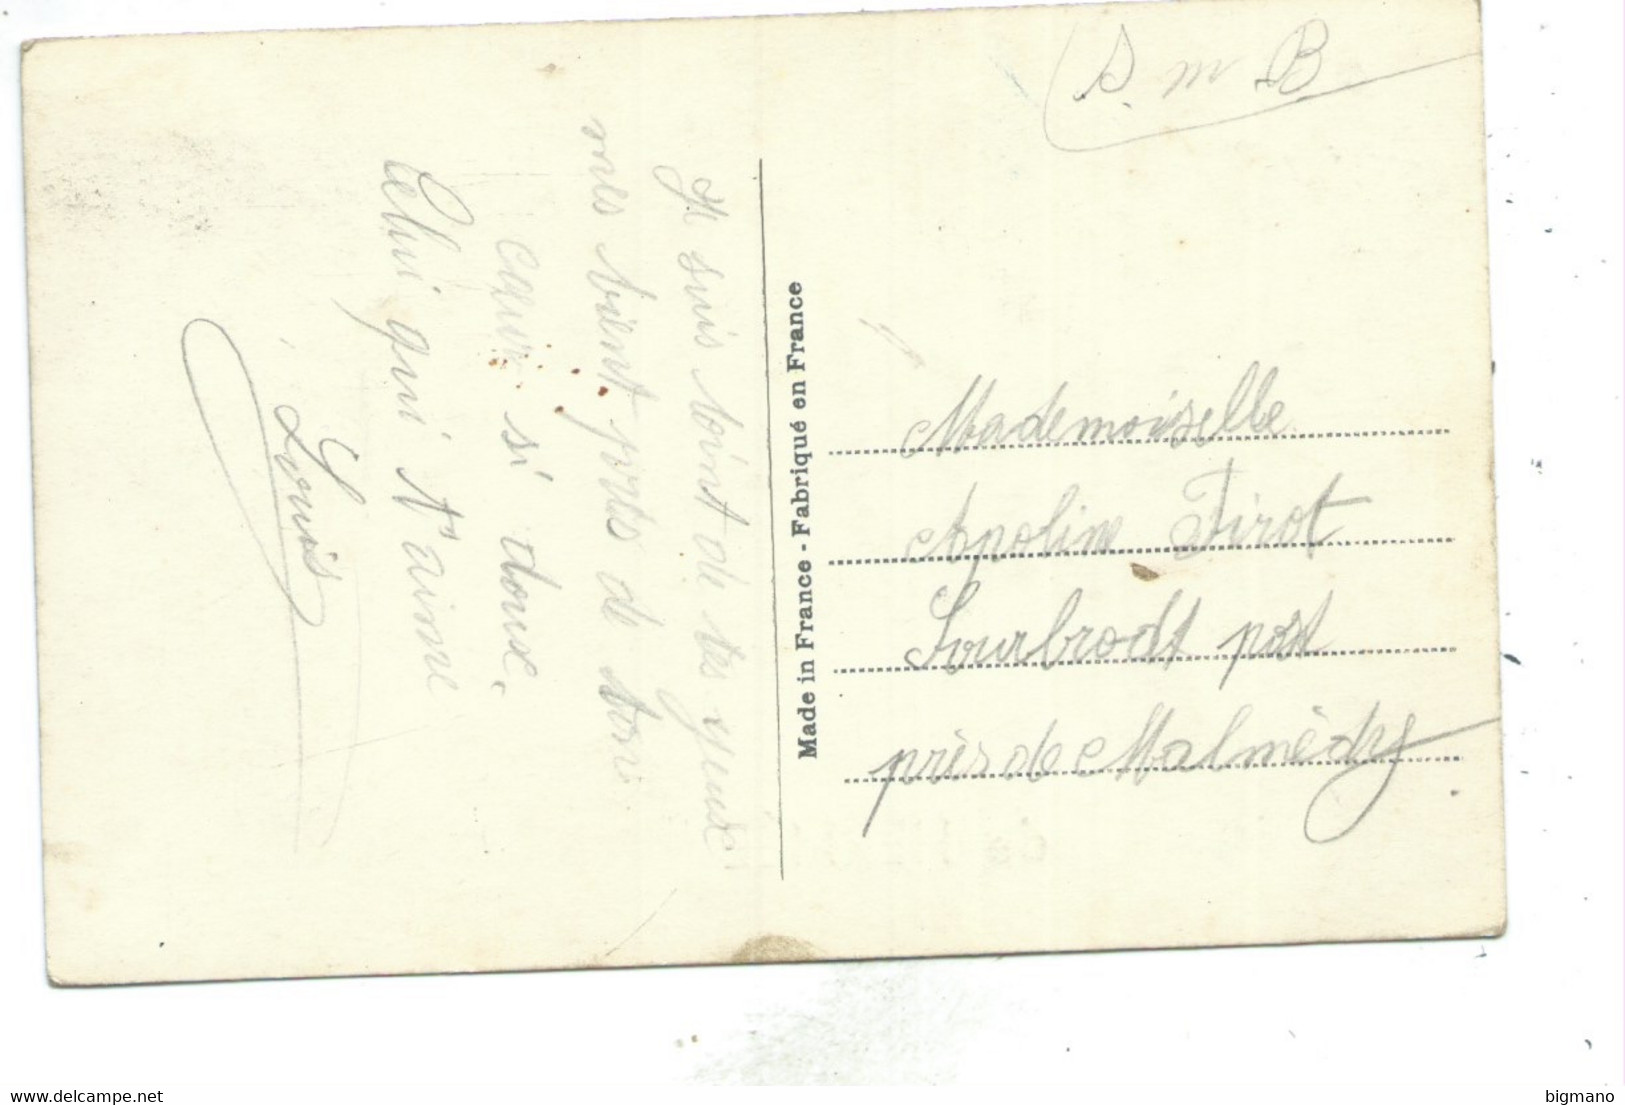 S. m B
Je suis loint de tes yeuse
mes bient près de ton
cœur si douse.
Celui qui t'aime
Louis
Made in France - Fabriqué en France
Mademoiselle
Apoline Firot
Sourbrodt post
près de Malmédy
www.delcampe.net
bigmano